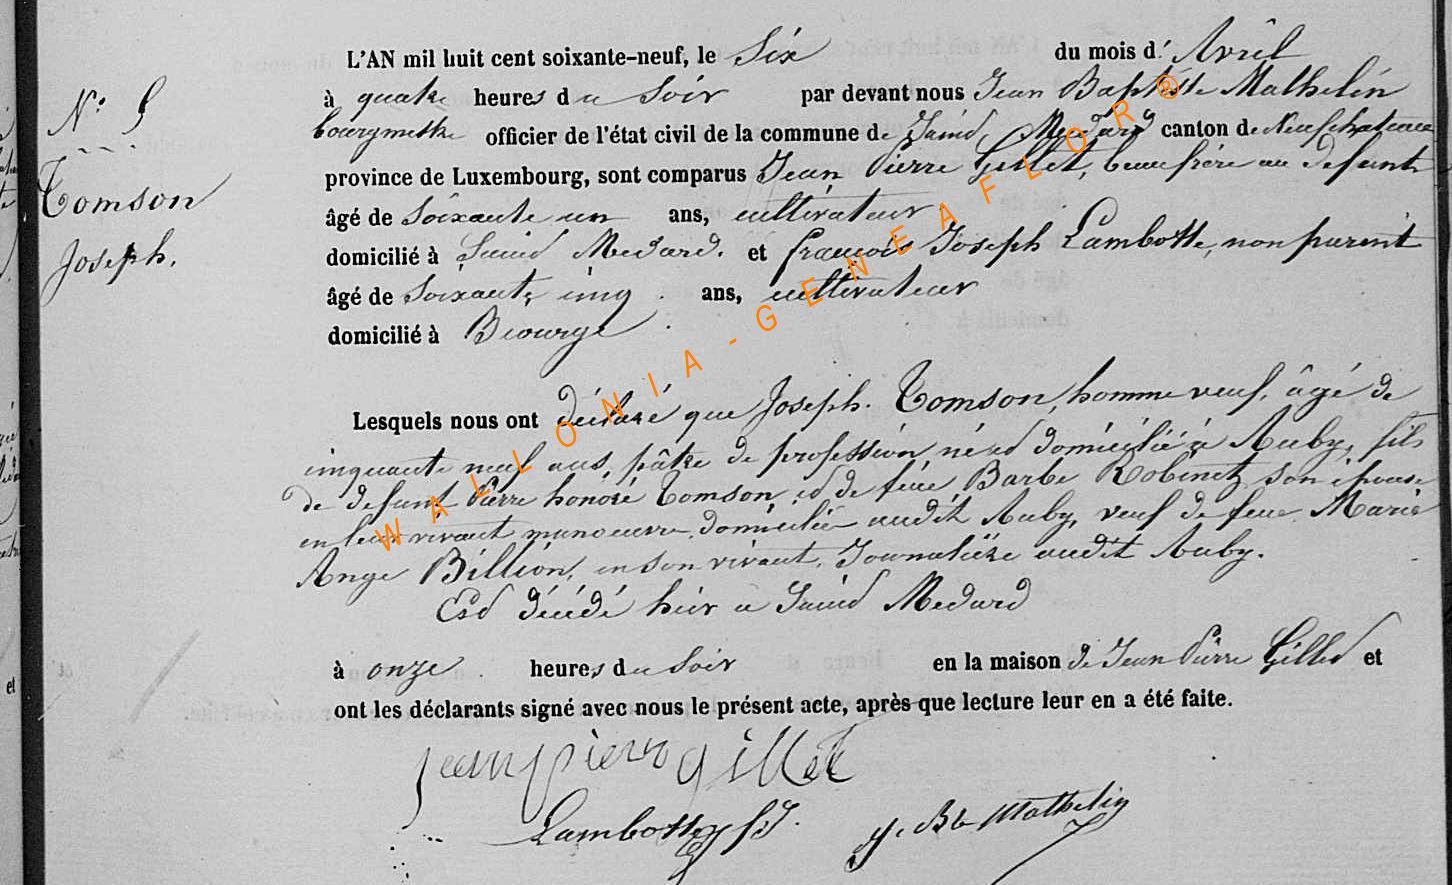 L'AN mil huit cent soixante-neuf, le Six du mois d' Avril
N° 9
à quatre heures du Soir par devant nous Jean Baptiste Mathelin
bourgmestre officier de l'état civil de la commune de Saint Medard canton de Neufchateau
Tomson
province de Luxembourg, sont comparus Jean Pierre Gillet, beau frère au defunt
âgé de Soixante un ans, cultivateur
Joseph.
domicilié à Saint Medard. et françois Joseph Lambotte, non parent
âgé de Soixante cinq ans, cultivateur
domicilié à Biourge
Lesquels nous ont déclaré que Joseph. Tomson homme veuf, âgé de
cinquante neuf ans, pâtre de profession né et domicilié à Auby, fils
de defunt Pierre honoré Tomson et de feue Barbe Robinet, son épouse
en leur vivant manoeuvre domicilié audit Auby, veuf de feue Marie
Ange Billion, en son vivant, Journalière audit Auby.
Est décédé hier à Saint Medard
à onze heures du Soir en la maison de Jean Pierre Gillet et
et
ont les déclarants signé avec nous le présent acte, après que lecture leur en a été faite.
jean pierre gillet
Lambotte fJ. J. Bte Mathelin
WALLONIA-GENEAFLOR®